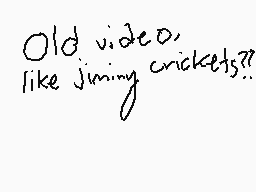 Old video,
like jiminy crickets??